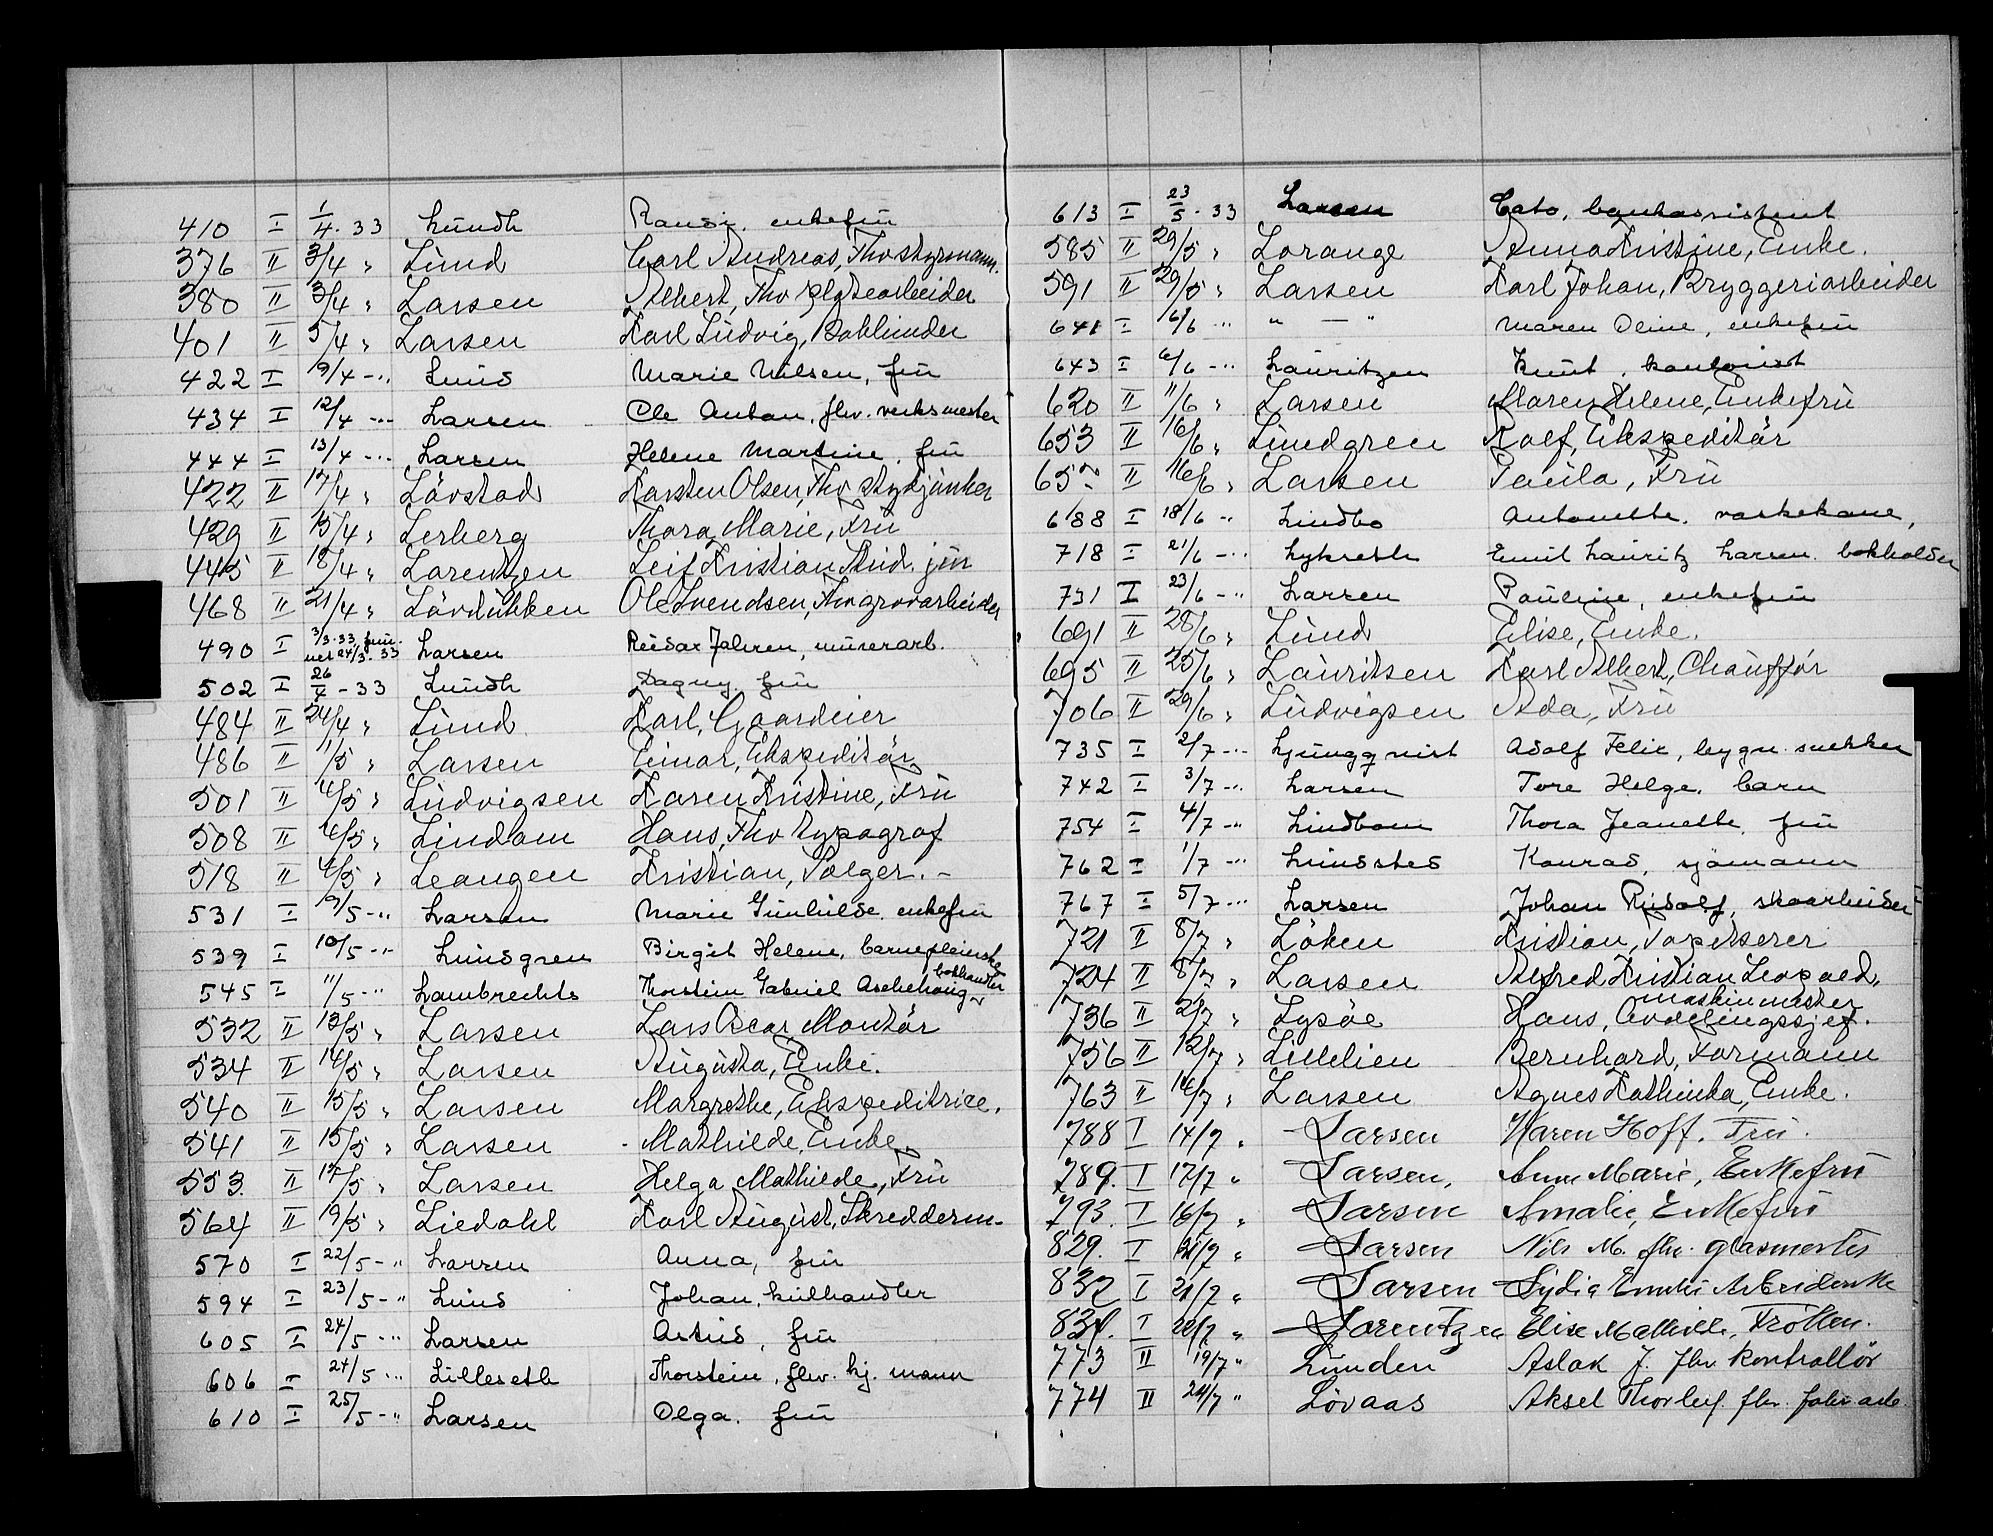 410 I 1/4 - 33 Lundh Randi, enkefru
376 II 3/4 " Lund Carl Andreas, Fhv styrmann.
380 II 3/4 " Larsen Albert, Fhv platearbeider
401 II 5/4 " Larsen Karl Ludvig, Bokbinder
422 I 19/4 - " Lund Marie Nilsen, fru
434 I 12/4 - " Larsen Ole Anton, fhv. verksmester
444 I 13/4 - " Larsen Helene Martine, fru
422 II 17/4 " Lövstad Karsten Olsen, Fhv
429 II 15/4 " Lerberg Thora Marie, Fru
445 II 18/4 " Larentzen Leif Kristian Stud. jur
468 II 21/4 " Lövdukken Ole Svendsen, Fhv grovarbeider
490 I 3/3-33 24/3-33 Larsen Reidar Jahren, murerarb.
502 I 26/4 - 33 Lundh Dagny, fru
484 II 24/4 " Lund Karl, Gaardeier
486 II 1/5 " Larsen Einar, Ekspeditör
501 II 4/5 " Ludvigsen Karen Kristine, Fru
508 II 6/5 " Lindam Hans, Fhv typograf
518 II 6/5 " Leangen Kristian, Sælger. -
531 I 9/5 - " Larsen Marie Gunhilde, enkefru
539 I 10/5 - " Lundgren Birgit Helene, barnepleierske
545 I 11/5 - " Lambrechts Thorstein Gabriel Aschehoug bokhandler
532 II 13/5 " Larsen Lars Oscar, Montör
534 II 14/5 " Larsen Augusta, Enke.
540 II 15/5 " Larsen Margrethe, Ekspeditrice.
541 II 15/5 " Larsen - Mathilde, Enke
553. II 17/5 " Larsen Helga Mathilde, Fru
564 II 19/5 " Liedahl Karl August, Skredderm.
570 I 22/5 - " Larsen Anna, fru
594 I 23/5 - " Lund Johan, kulhandler
605 I 24/5 - " Larsen Astrid, fru
606 I 24/5 - " Lilleseth Thorstein, fhv. hj. mann
610 I 25/5 - " Larsen Olga, fru
613 I 23/5 - 33 Larsen Cato, bankassistent
585 II 29/5 " Lorange Anna Kristine, Enke.
591 II 29/5 " Larsen Karl Johan, Bryggeriarbeider
641 I 6/6 - " " — " Maren Oline, enkefru
643 I 6/6 - " Lauritzen Knut, kontorist
620 II 11/6 " Larsen Maren Helene, Enkefru
653 II 16/6 " Lundgren Rolf, Ekspeditör
II 16/6 " Larsen Paula, Fru
688 I 18/6 - " Lindbo Antonette, vaskekone,
718 I 21/6 - " Lykseth Emil Lauritz Larsen, bokholder
731 I 23/6 - " Larsen Pauline, enkefru
691 II 28/6 " Lund Elise, Enke.
695 II 25/6 " Lauritsen Karl Albert, Chauffør
706 II 29/6 " Ludvigsen Ada, Fru
735 I 2/7 - " Ljungqvist Adolf Felix, bygn. snekker
742 I 3/7 - " Larsen Tore Helge, barn
754 I 4/7 - " Lindbom Thora Jeanette, fru
762 I 1/7 - " Lundsted Konrad, sjømann
767 I 5/7 - " Larsen Johan Rudolf, skoarbeider
721 II 8/7 " Löken Kristian, Tapetserer
724 II 8/7 " Larsen Alfred Kristian Leopold, maskinmester
736 II 2/7 " Lysöe Hans, Avdelingssjef.
756 II 12/7 " Lillelien Bernhard, Formann
763 II 14/7 " Larsen Agnes Kathinka, Enke.
788 I 14/7 " Larsen Karen Hoff, Fru.
789. I 17/7 " Larsen, Anne Marie, Enkefru
793. I 16/7 " Larsen Amalie, Enkefru
829. I 21/7 " Larsen Nils M. fhv. glasmester
832 I 21/7 " Larsen Lydia
I 22/7 " Lorentzen Elise Mathilde, Frøken.
773 II 19/7 " Lunden Aslak J. fhv kontrollör
774 II 24/7 " Lövaas Aksel Thorleif fhv. fabr arb.